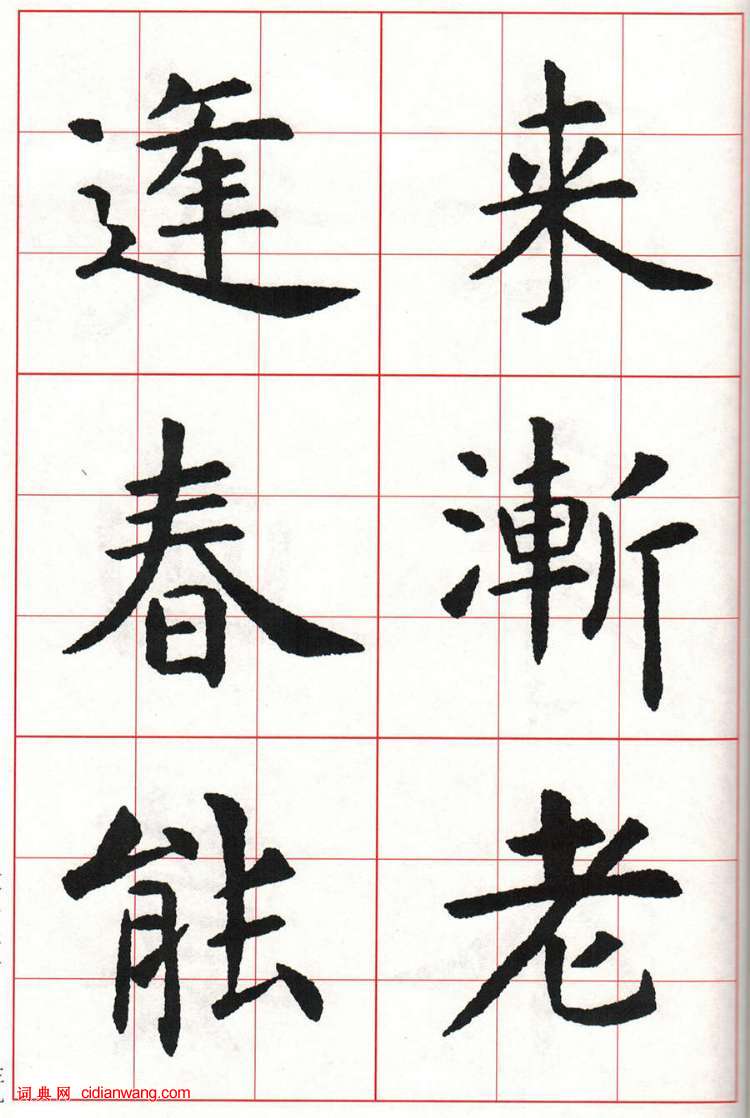 来漸老
逢春能
词典网 cidianwang.com